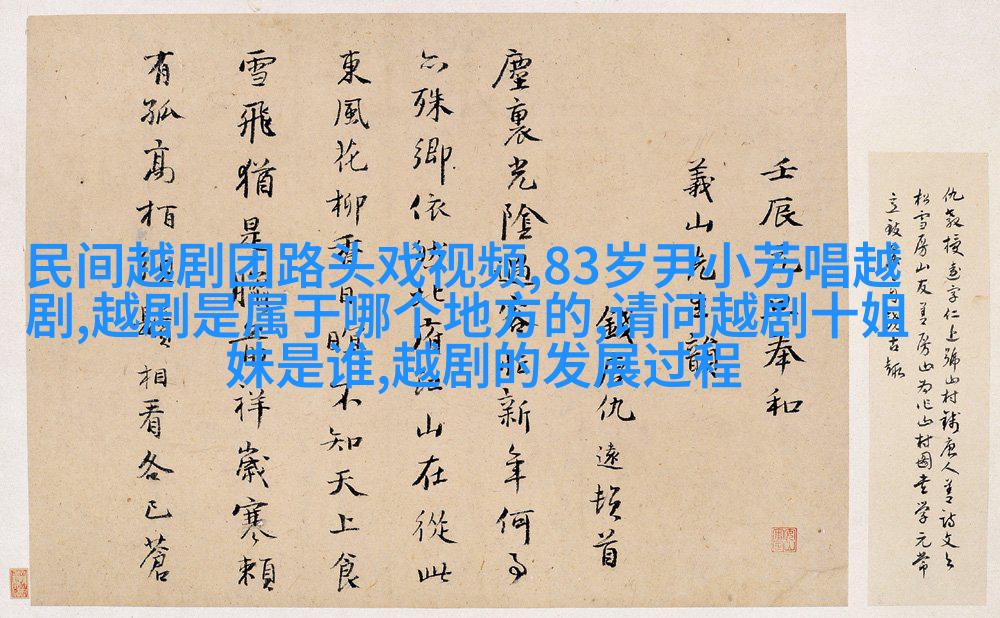 民间越剧团路头戏视频,83岁尹小芳唱越
剧,越剧是属于哪个地方的,请问越剧十姐
妹是谁,越剧的发展过程
壬辰元旦奉和
義山先生韻
錢唐仇遠頓首
塵裏光陰過新年何事
殊鄉依山在從此
東風花柳香日不知天上食
雪飛猶是祥歲寒賴
有孤高栢相看各已蒼
仇教授遠字仁上號山村錢唐人善詩文与
松雪房山友善房山為作山村圖書学元常
古趣